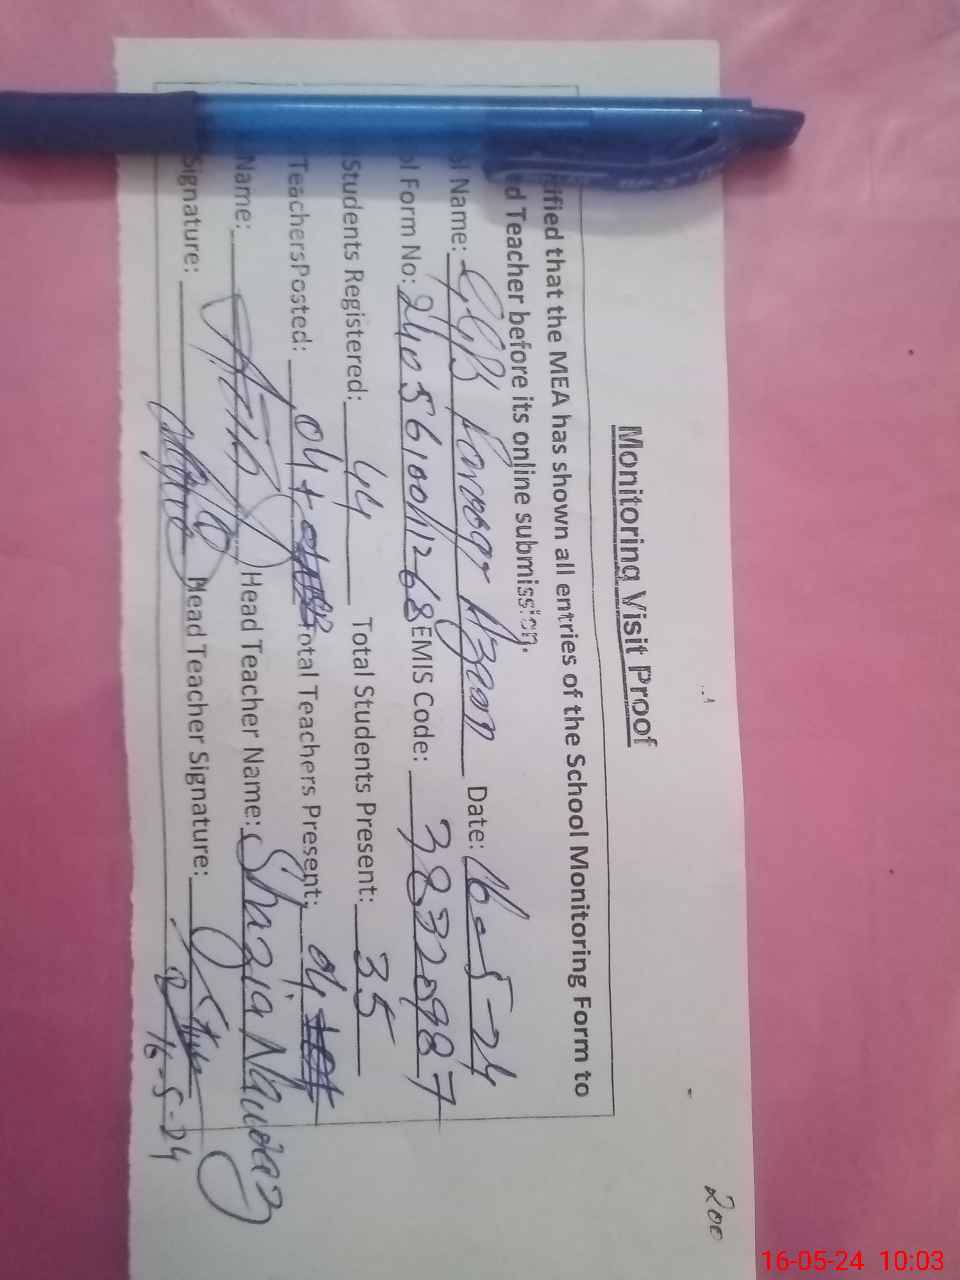 200
Monitoring Visit Proof
ified that the MEA has shown all entries of the School Monitoring Form to
d Teacher before its online submission.
ol Name: Date: 16-5-24
ol Form No: 24056100H1268 EMIS Code: 388320987
Students Registered: 44 Total Students Present: 35
TeachersPosted: 04+ Total Teachers Present: 04
Name: Head Teacher Name: Shazia Nawaz
Signature: Head Teacher Signature:
16-5-24
16-05-24 10:03